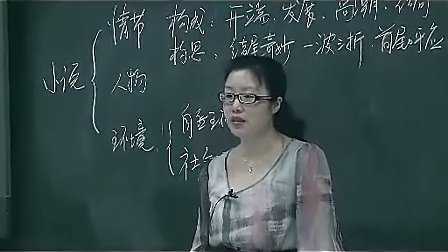 情节 构成：开端、发展、高潮、结局
构思，结尾奇妙 一波三折，首尾呼应
小说
人物
环境 自然环
社会